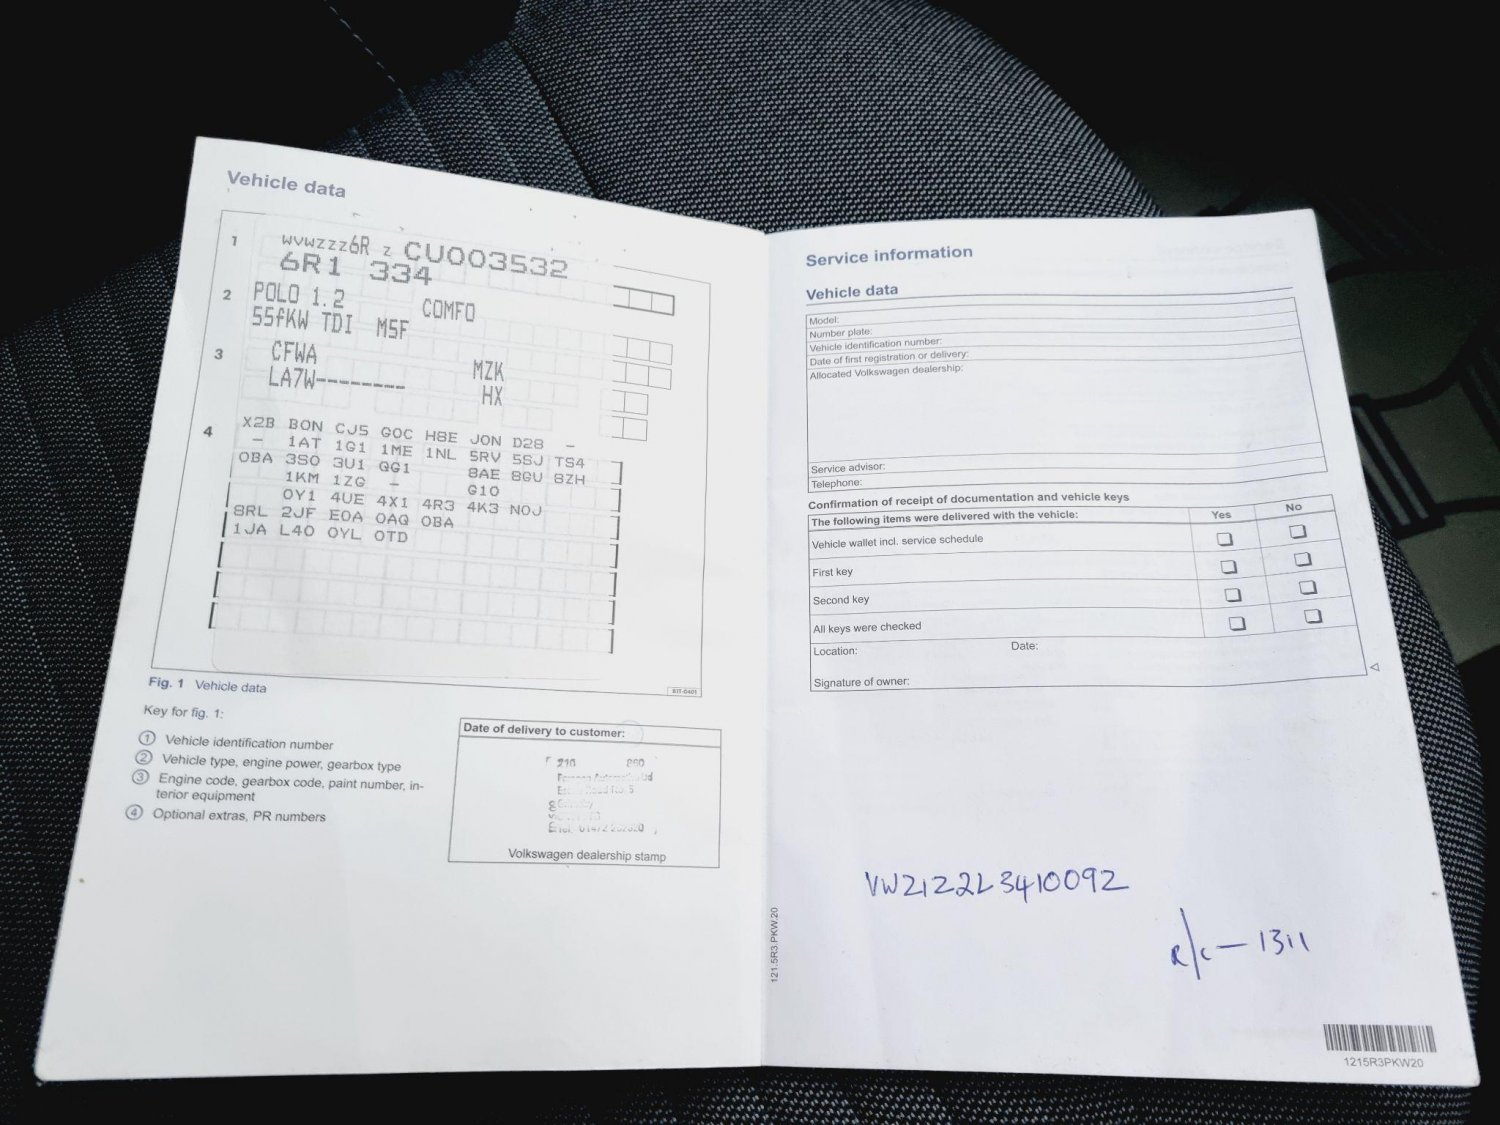 Vehicle data
1 WVWZZZ6R Z CU003532
6R1 334
2 POLO 1.2 COMFO
55fKW TDI M5F
3 CFWA MZK
LA7W-------- HX
4 X2B B0N CJ5 G0C H8E J0N D28 -
- 1AT 1G1 1ME 1NL 5RV 5SJ TS4
0BA 3S0 3U1 QG1 8AE 8GU 8ZH
1KM 1ZG - G10
0Y1 4UE 4X1 4R3 4K3 N0J
8RL 2JF E0A 0AQ 0BA
1JA L40 0YL 0TD
B1T-0401
Fig. 1 Vehicle data
Key for fig. 1:
1 Vehicle identification number
2 Vehicle type, engine power, gearbox type
3 Engine code, gearbox code, paint number, in-
terior equipment
4 Optional extras, PR numbers
Date of delivery to customer:
210 860
Volkswagen dealership stamp
Service information
Vehicle data
Model:
Number plate:
Vehicle identification number:
Date of first registration or delivery:
Allocated Volkswagen dealership:
Service advisor:
Telephone:
Confirmation of receipt of documentation and vehicle keys
The following items were delivered with the vehicle: Yes No
Vehicle wallet incl. service schedule
First key
Second key
All keys were checked
Location: Date:
Signature of owner:
VWZ1Z2L3410092
R/C - 1311
121.5R3.PKW.20
1215R3PKW20